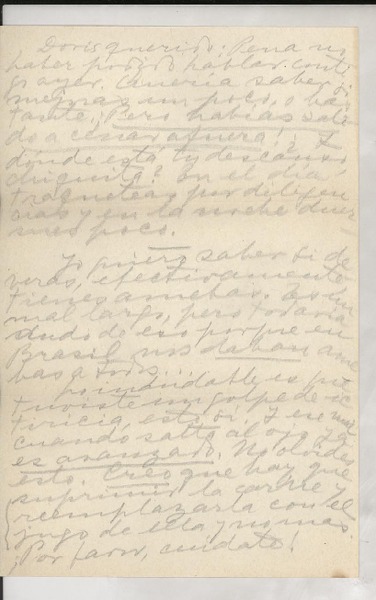 Doris querido: Pena no
haber podido hablar conti-
go ayer. Quería saber si
mejoras un poco, o bas-
tante. ¡Pero habías sali-
do a cenar afuera! ¿Y
dónde está tu descanso
chiquita? En el día
traqueteas por diligen-
cias y en la noche duer-
mes poco.
Yo quiero saber si de
veras, efectivamente
tienes amebas. Es un
mal largo, pero todavía
dudo de eso porque en
Brasil nos daban ame-
bas a todos...
Lo indudable es que
tuviste un golpe de ic-
tericia, esto, sí. Y es mal
cuando salta al ojo. Ya
es avanzado. No olvides
esto. Creo que hay que
suprimir la carne y
reemplazarla con el
jugo de ella y no mas.
¡Por favor, cuídate!